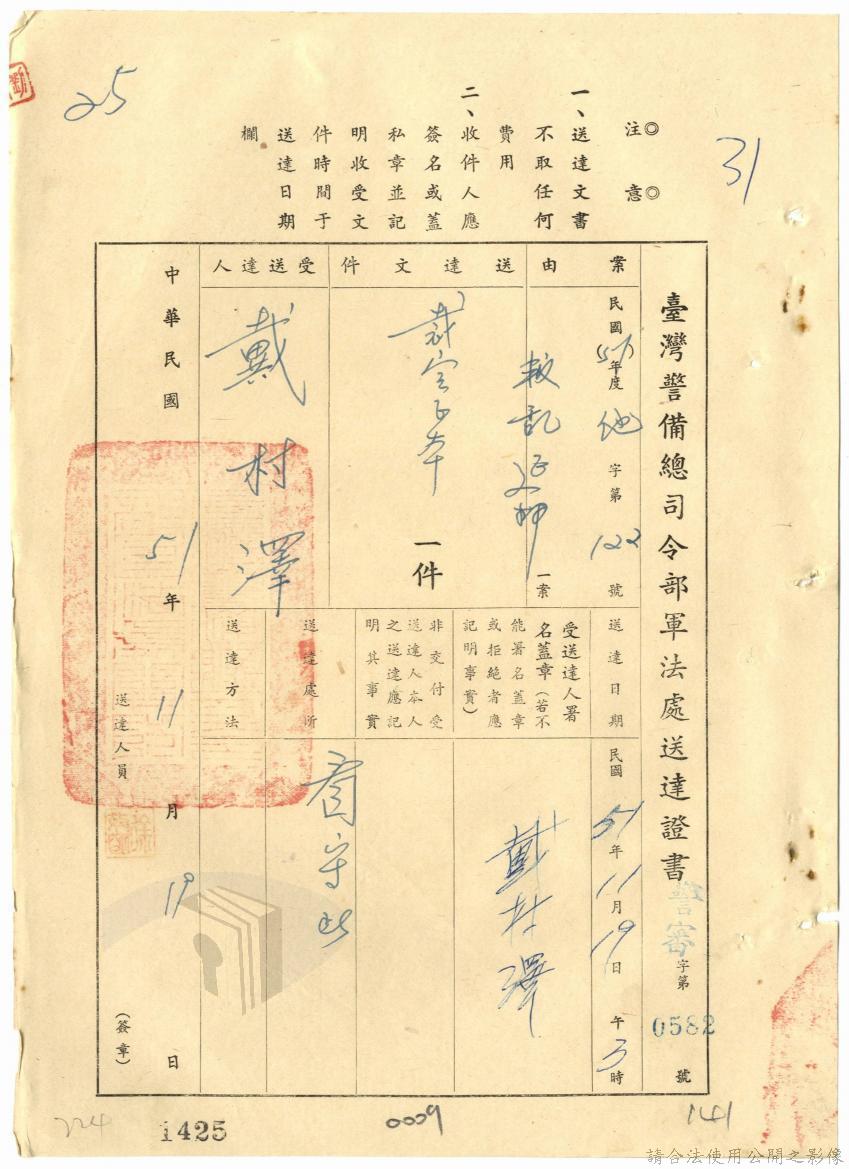 25
31
◎注意◎
一、送達文書
不取任何
費用
二、收件人應
簽名或蓋
私章並記
明收受文
件時間于
送達日期
欄
臺灣警備總司令部軍法處送達證書
警審字第0582號
案由
民國51年度他字第122號
叛乱延押一案
送達文件
裁定正本一件
受送達人
戴村澤
送達日期
民國51年11月19日午3時
受送達人署
名蓋章(若不
能署名蓋章
或拒絶者應
記明事實)
戴村澤
非交付受
送達人本人
之送達應記
明其事實
送達處所
看守所
送達方法
中華民國51年11月19日
送達人員
(簽章)
224
1425
0009
141
請合法使用公開之影像